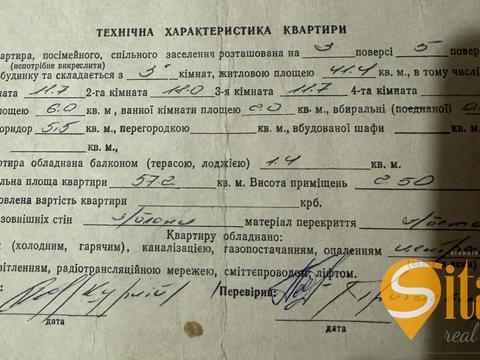 ТЕХНІЧНА ХАРАКТЕРИСТИКА КВАРТИРИ
квартира, посімейного, спільного заселення розташована на 3 поверсі 5 повер
(непотрібне викреслити)
будинку та складається з 3 кімнат, житловою площею 41.4 кв. м., в тому числі
ната 11.7 2-га кімната 18.0 3-я кімната 11.7 4-та кімната
площею 6.0 кв. м., ванної кімнати площею кв. м., вбиральні (поєднаної)
оридор 5.5 кв. м., перегородкою кв. м., вбудованої шафи
кв. м.,
ртира обладнана балконом (терасою, лоджією) 1.4 кв. м.
льна площа квартири 57.2 кв. м. Висота приміщень 2.50
новлена вартість квартири крб.
зовнішніх стін з/блоки матеріал перекриття
Квартиру обладнано:
(холодним, гарячим), каналізацією, газопостачанням, опаленням
вітленням, радіотрансляційною мережею, сміттєпроводом, ліфтом.
Перевірив:
дата дата
Sita
real